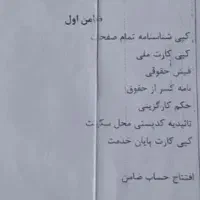 ضامن اول
کپی شناسنامه تمام صفحات
کپی کارت ملی
فیش حقوقی
نامه کسر از حقوق
حکم کارگزینی
تائیدیه کدپستی محل سکونت
کپی کارت پایان خدمت
افتتاح حساب ضامن